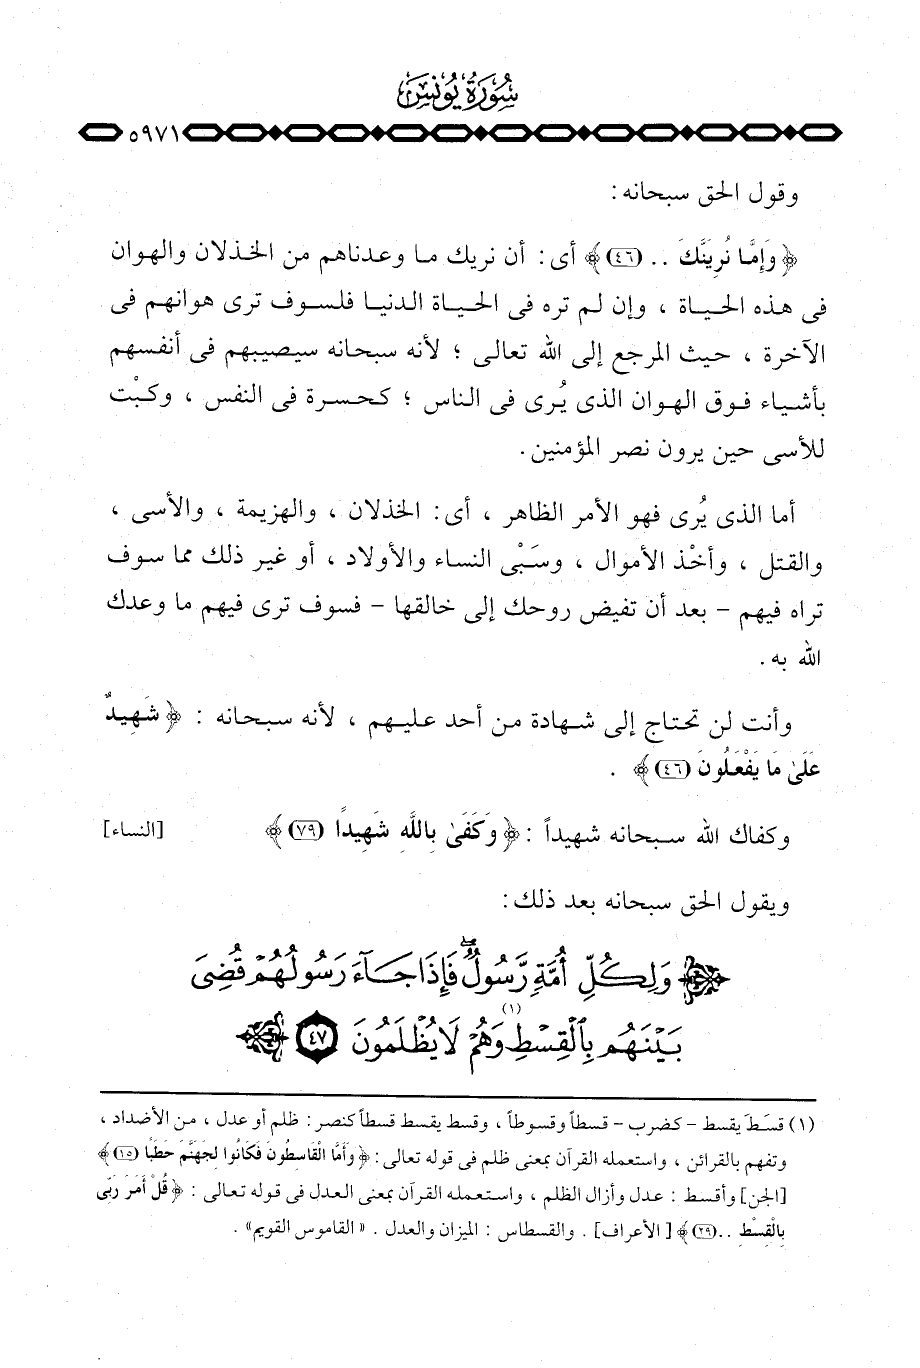 سُورَةُ يُونُسَ
٥٩٧١
وقول الحق سبحانه:
﴿ وَإِمَّا نُرِيَنَّكَ .. (٤٦) ﴾ أى: أن نريك ما وعدناهم من الخذلان والهوان
فى هذه الحياة ، وإن لم تره فى الحياة الدنيا فلسوف ترى هوانهم فى
الآخرة ، حيث المرجع إلى الله تعالى ؛ لأنه سبحانه سيصيبهم فى أنفسهم
بأشياء فوق الهوان الذى يُرى فى الناس ؛ كحسرة فى النفس ، وكبْت
للأسى حين يرون نصر المؤمنين.
أما الذى يُرى فهو الأمر الظاهر ، أى: الخذلان ، والهزيمة ، والأسى ،
والقتل ، وأخْذ الأموال ، وسَبْى النساء والأولاد ، أو غير ذلك مما سوف
تراه فيهم – بعد أن تفيض روحك إلى خالقها – فسوف ترى فيهم ما وعدك
الله به.
وأنت لن تحتاج إلى شهادة من أحد عليهم ، لأنه سبحانه : ﴿ شَهِيدٌ
عَلَىٰ مَا يَفْعَلُونَ (٤٦) ﴾ .
وكفاك الله سبحانه شهيداً : ﴿ وَكَفَىٰ بِاللَّهِ شَهِيدًا (٧٩) ﴾ [النساء]
ويقول الحق سبحانه بعد ذلك:
﴿ وَلِكُلِّ أُمَّةٍ رَّسُولٌ ۖ فَإِذَا جَآءَ رَسُولُهُمْ قُضِىَ
بَيْنَهُم بِٱلْقِسْطِ (١) وَهُمْ لَا يُظْلَمُونَ ٤٧ ﴾
(١) قسَطَ يقسط – كضرب – قسطاً وقسوطاً ، وقسط يقسط قسطاً كنصر: ظلم أو عدل ، من الأضداد ،
وتفهم بالقرائن ، واستعمله القرآن بمعنى ظلم فى قوله تعالى: ﴿ وَأَمَّا الْقَاسِطُونَ فَكَانُوا لِجَهَنَّمَ حَطَبًا (١٥) ﴾
[الجن] وأقسط : عدل وأزال الظلم ، واستعمله القرآن بمعنى العدل فى قوله تعالى : ﴿ قُلْ أَمَرَ رَبِّى
بِالْقِسْطِ ..(٢٩) ﴾ [ الأعراف] . والقسطاس : الميزان والعدل . « القاموس القويم» .